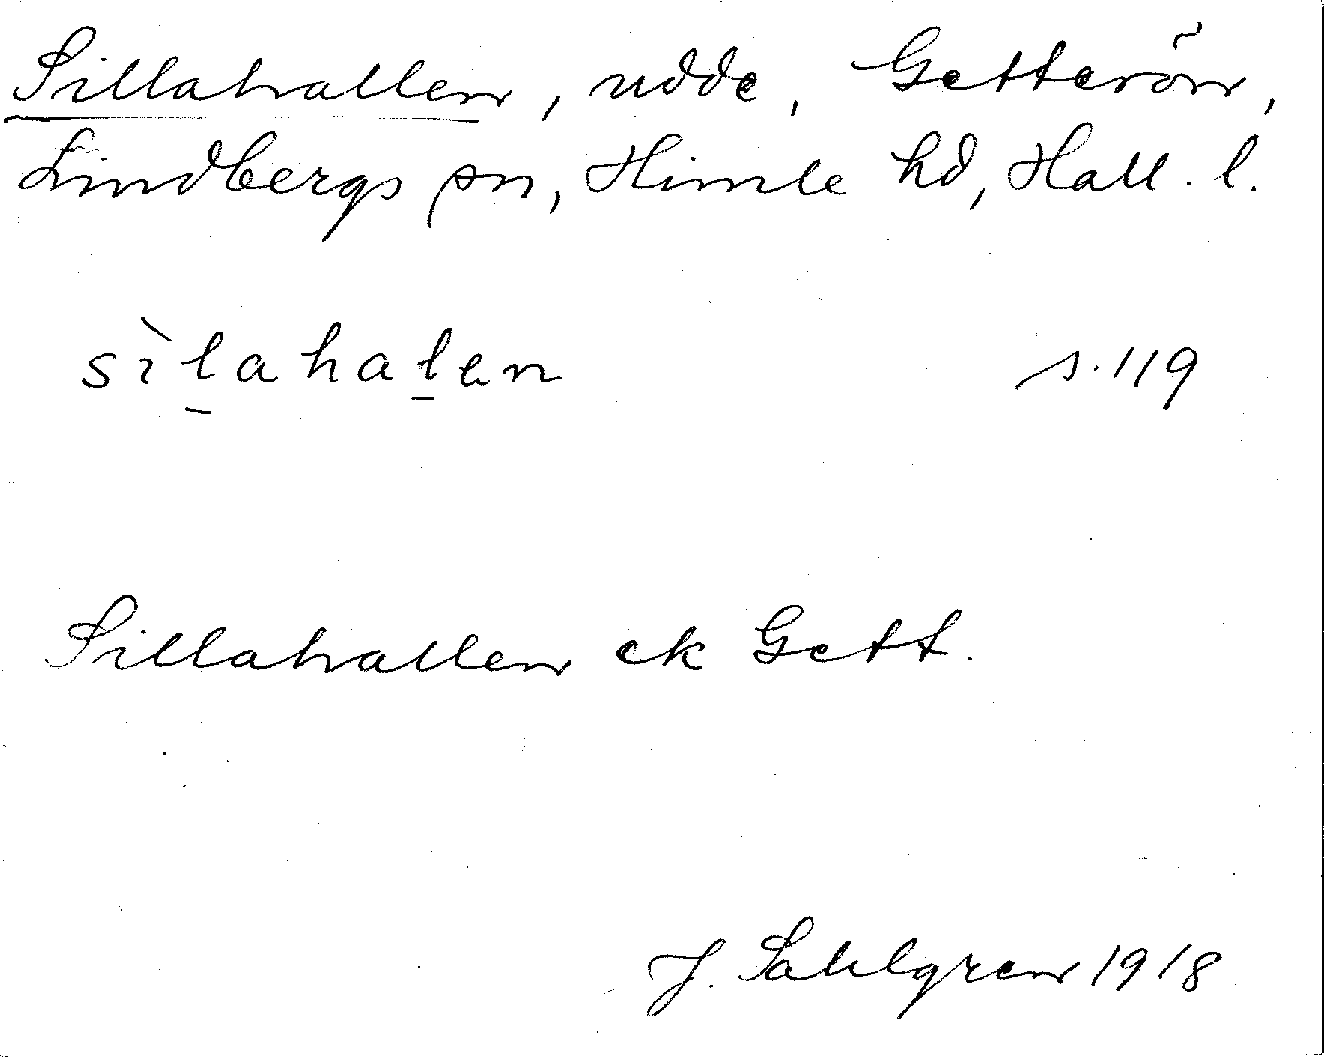 Sillahallen, udde, Getterön,
Lindbergs sn, Himle hd, Hall. l.
sìl̠ahal̠en s. 119
Sillahallen ek Gett.
J. Sahlgren 1918